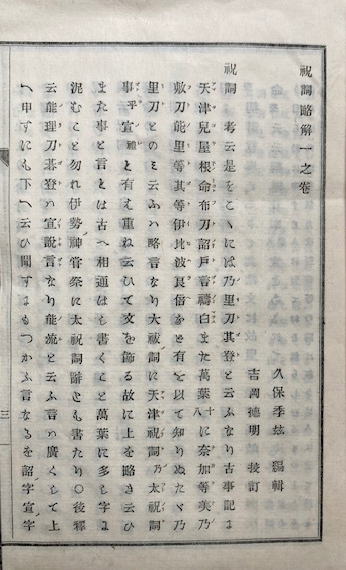 祝詞略解一之卷
久保季玆 編輯
吉岡德明 校訂
祝詞 考云是をこゝには乃里刀其登と云ふなり古事記ま
天津兒屋根命布刀詔戸言禱白また萬葉十八に奈加等美乃
敷刀能里等其等伊比波良倍を と有を以て知りぬたゞ乃
里刀とのミ云ふハ略言なり大祓詞に天津祝詞乃太祝詞
事乎宣禮と有え重ね云ひて文を飾る故に上を略き云ひ
また事と言とは古へ相通はも書くこと萬葉に多し字よ
泥むこと勿れ伊勢神嘗祭に太祝詞辭とも書たり○後釋
云能理刀碁登ハ宣說言なり能流と云ふ言ハ廣くして上
へ申すにも下へ云ひ聞すよもつかふ言なるを詔字宣字
三